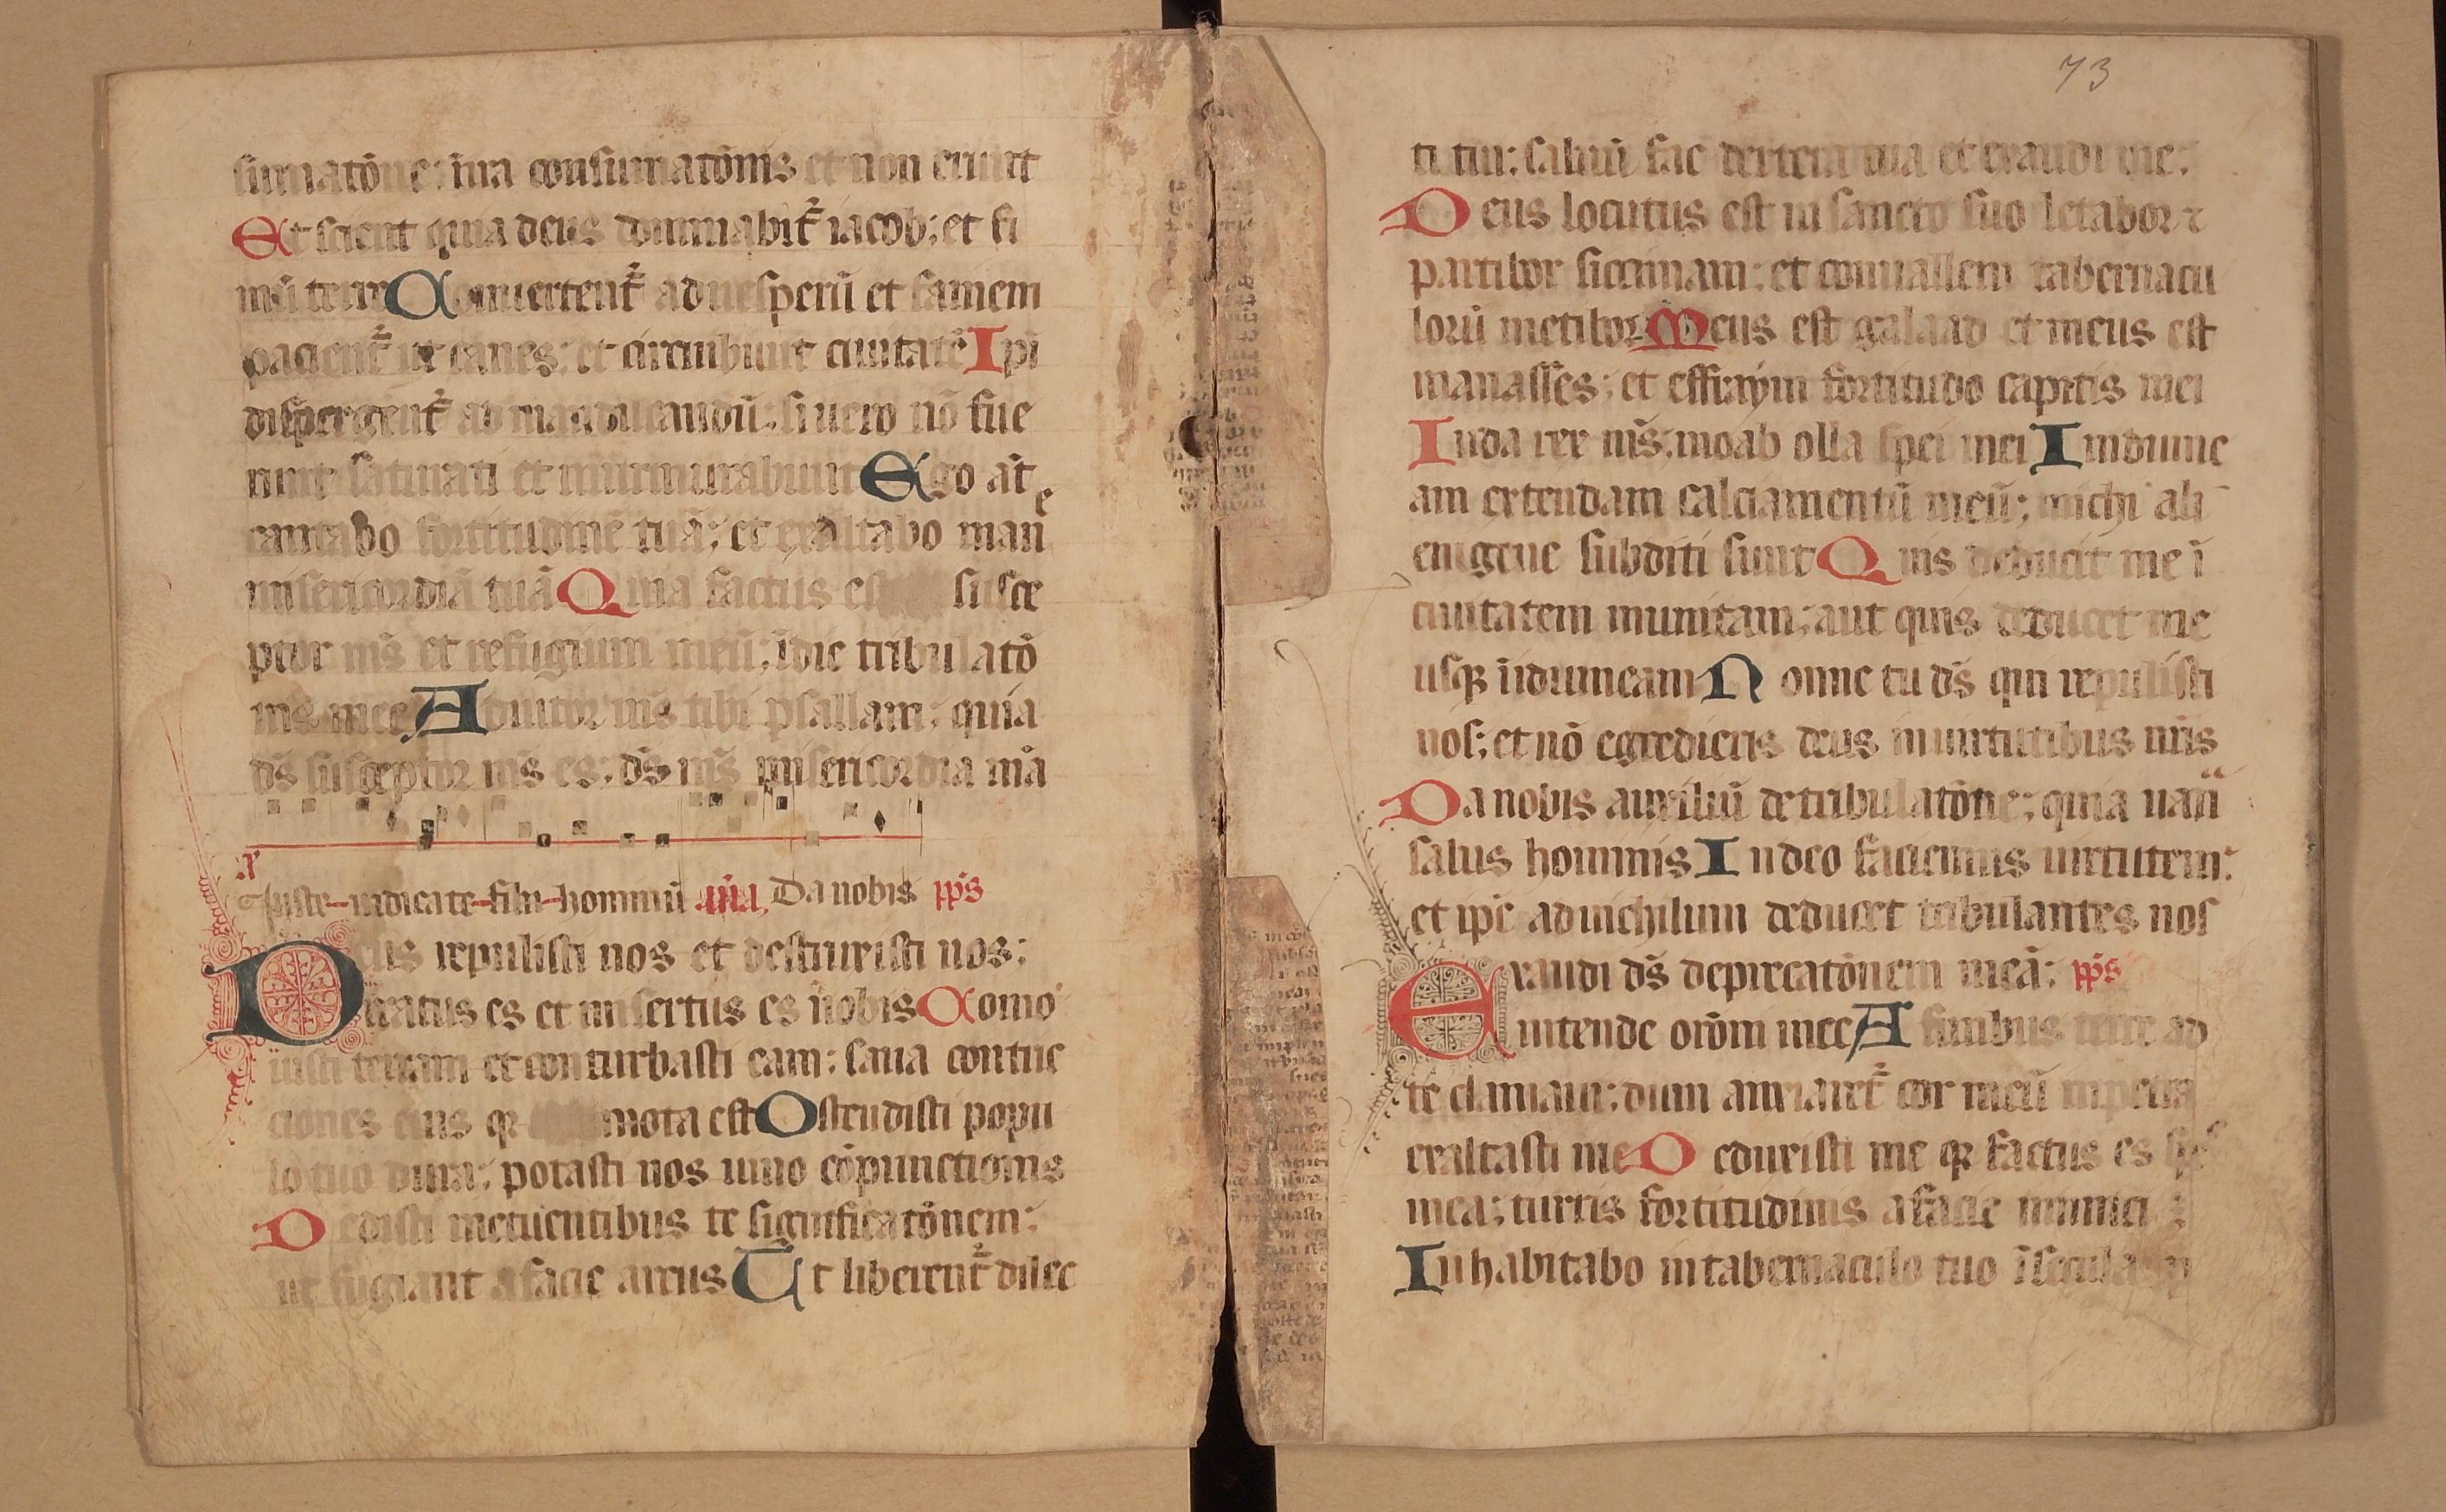 sumatōne: ira consumatōnis et non erunt
Et scient quia deus dominabit᷑ iacob: et fi
niū terre Conuertent᷑ ad uesperū et famem
pacient᷑ ut canes: et circuibunt ciuitatē Ipi
dispergent᷑ ad manducandū: si uero nō fue
runt saturati et murmurabunt Ego aūt
cantabo fortitudinē tuā: et exaltabo mane
misericordiā tuā Quia factus es susce
ptor ms̄ et refugium meū: īdie tribulatō
nis mee Adiutor ms̄ tibi psallam: quia
ds̄ susceptor ms̄ es: ds̄ ms̄ misericordia mā
Iuste iudicate filii hominū Da nobis pp̄s
Deus repulisti nos et destruxisti nos:
iratus es et misertus es nobis Comо
uisti terram et conturbasti eam: sana contric
ciones eius qꝛ mota est Ostendisti popu
lo tuo dura: potasti nos uino cōpunctionis
Dedisti metuentibus te significatōnem:
ut fugiant a facie arcus Ut liberent᷑ dilec
73
ti tui: saluū fac dextera tua et exaudi me:
Deus locutus est in sancto suo letabor ⁊
partibor siccimam: et conuallem tabernacu
lorū metibor Meus est galaad et meus est
manasses: et effraym fortitudo capitis mei
Iuda rex ms̄: moab olla spei mei In idume
am extendam calciamentū meū: michi ali
enigene subditi sunt Quis deducit me ī
ciuitatem munitam: aut quis deducet me
usqꝫ ī idumeam Nonne tu ds̄ qui repulisti
nos: et nō egredieris deus in uirtutibus nr̄is
Da nobis auxiliū de tribulatōne: quia uana
salus hominis In deo faciemus uirtutem:
et ipē ad nichilum deducet tribulantes nos
Exaudi ds̄ deprecatōnem meā: pp̄s
intende orōni mee A finibus terre ad
te clamaui: dum anxiaret᷑ cor meū in petra
exaltasti me Deduxisti me qꝛ factus es spes
mea: turris fortitudinis a facie inimici:
Inhabitabo in tabernaculo tuo ī secula